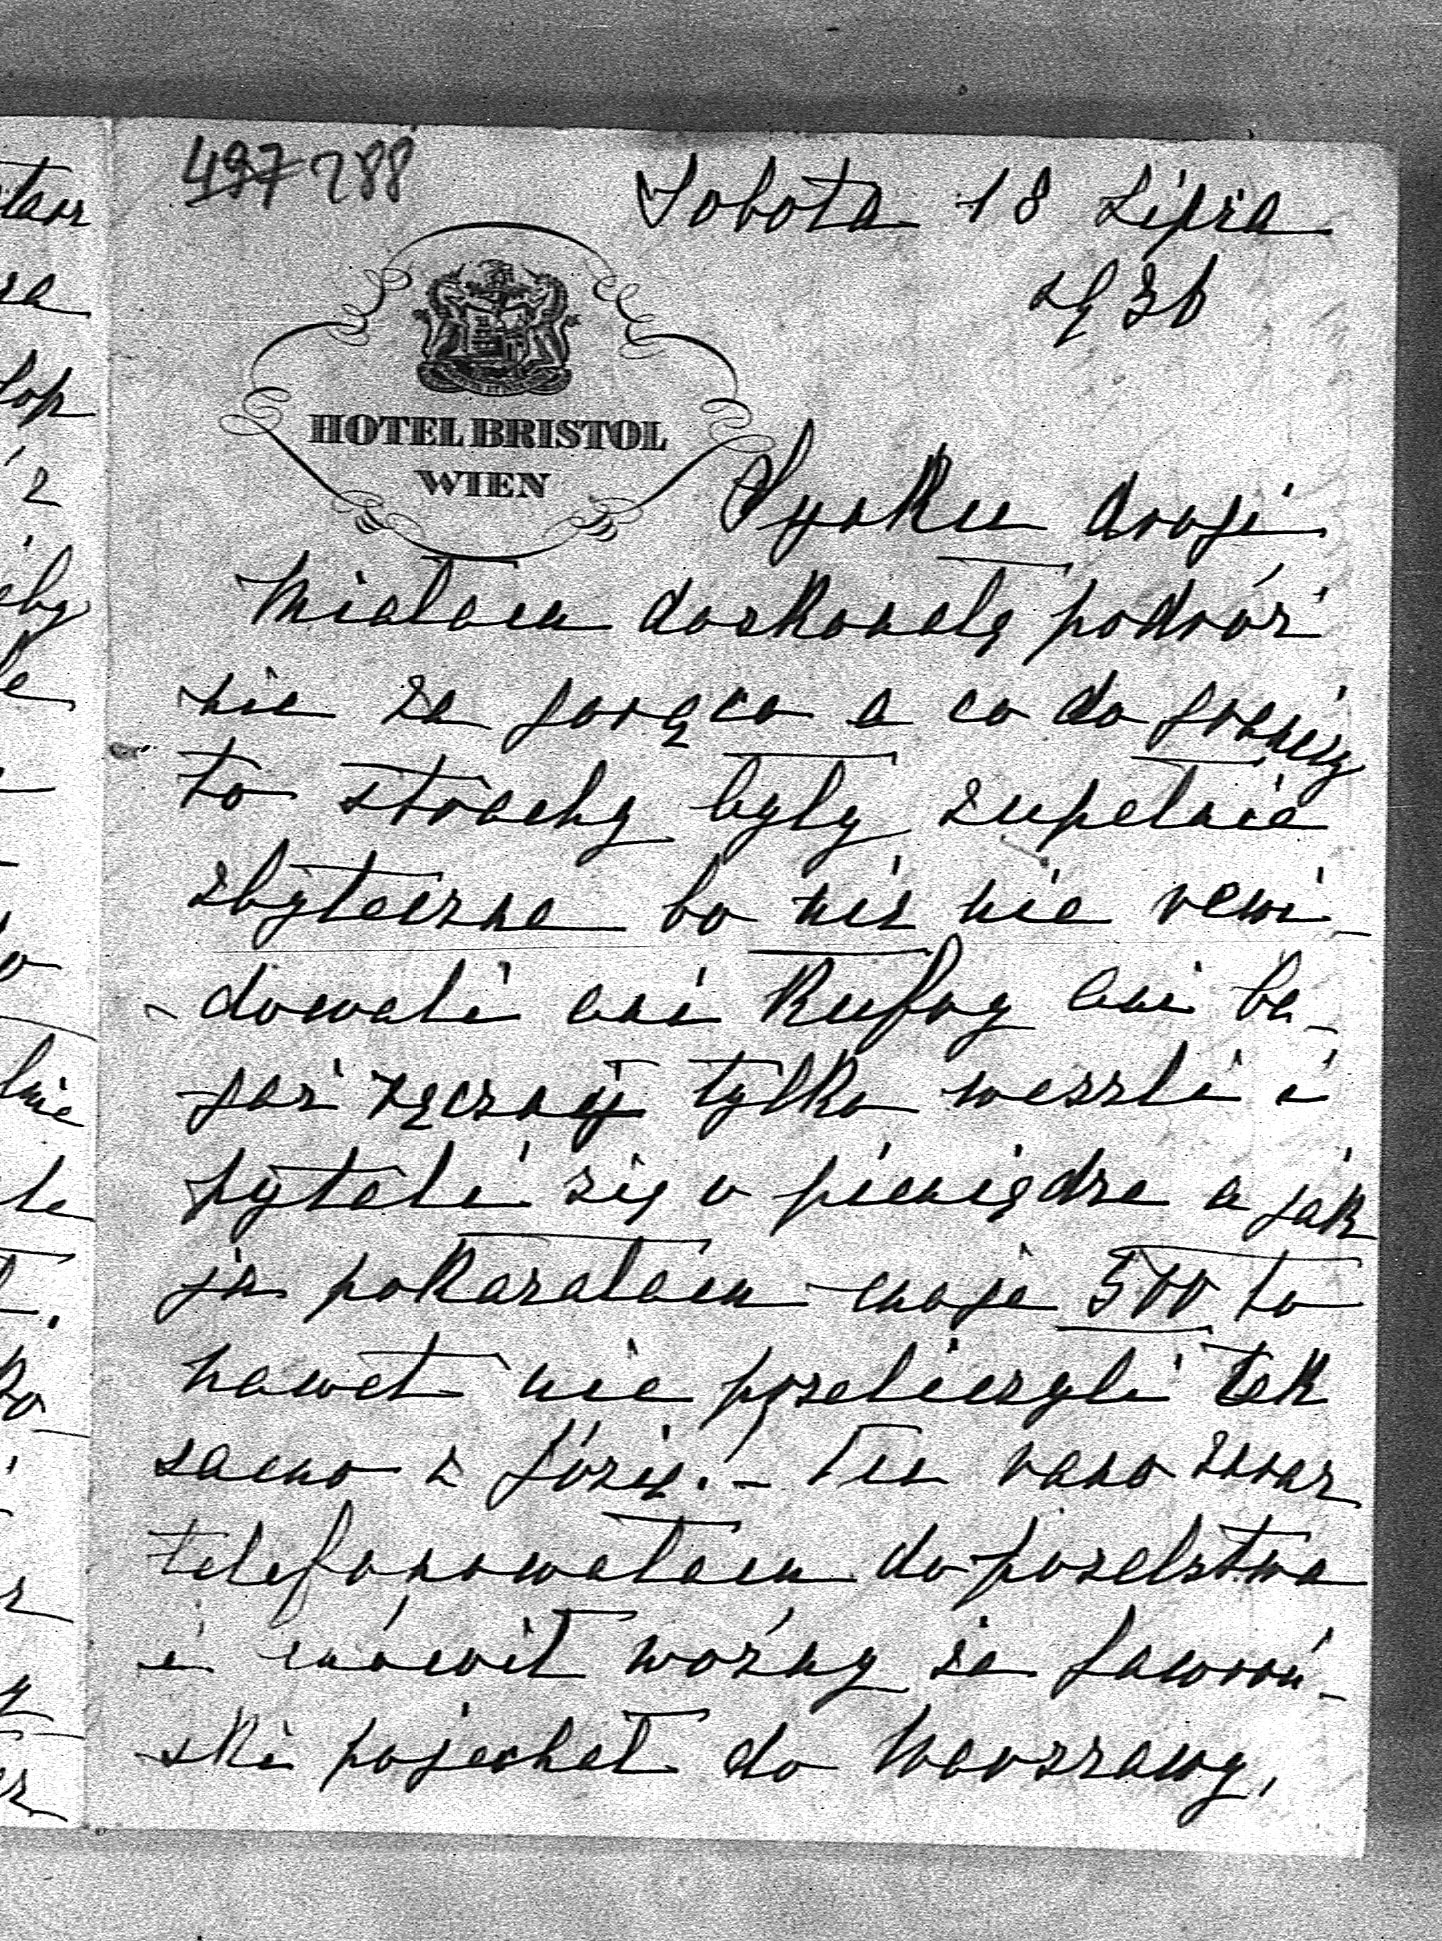 497 288
Sobota 18 Lipca
936
HOTEL BRISTOL
WIEN
Synku drogi
Miałam doskonałą podróż
nie za gorąco a co do granicy
to strachy były zupełnie
zbyteczne bo nic nie rewi-
dowali ani kufry ani ba-
gaż ręczny tylko weszli i
pytali się o pieniądze a jak
ja pokazałam moje 500 to
nawet nie przeliczyli tak
samo z Józią. – Tu rano zaraz
telefonowałam do poselstwa
i mówił woźny że Gawroń-
ski pojechał do Warszawy,